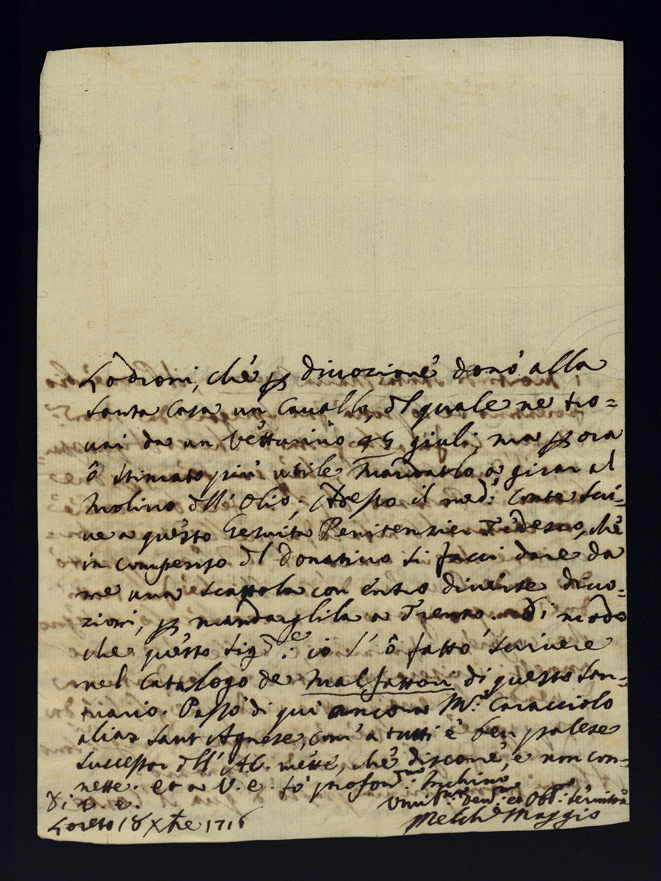 Lodroni, che p divozione donò alla
Santa Casa un Cavallo, dl quale ne tro=
vai da un Vetturino 45 giuli, ma p ora
ô stimato più utile mandarlo a girar al
Molino dll' Olio; Adesso il med.º Conte scri=
ve a questo Gesuita Penitenzier Tedesco, che
in compenso dl Donativo si facci dare da
me una scattola con entro diverse divo=
zioni, p mandargliela a Trento. Di modo
che questo Sig.re io l' ô fatto scrivere
nel Catalogo de Malfattori di questo San=
tuario. Passò di qui ancora M.r Caracciolo
alias Sant Agnese, com' a tutti è ben palese
successor dll' Ab. nette, che discorre, e non con=
nette. et a V. e. fo profond.mo inchino
Di V. e.
Umil.mo Dev.mo et Obb.mo servitore
Loreto 18 Xbre 1716
Melch.r Maggio